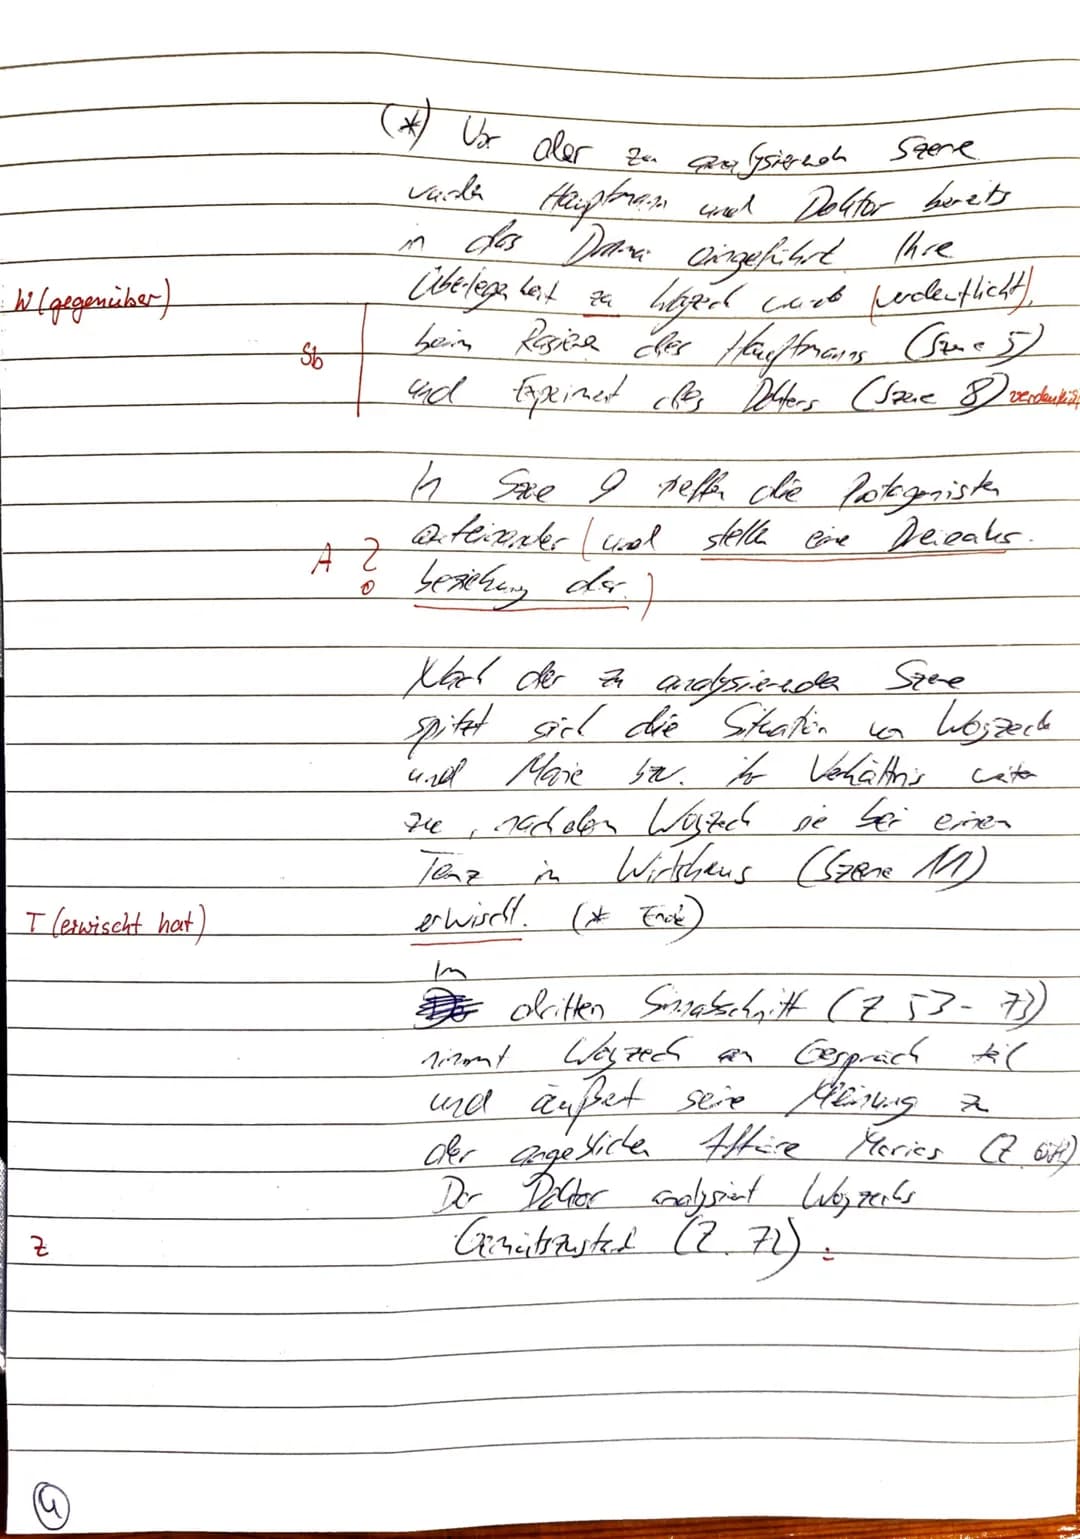 (*) Vor der zu analysierenden Szene
wurden Hauptmann und Doktor bereits
in das Drama eingeführt. Ihre
W (gegenüber) Überlegenheit zu Woyzeck wurde (verdeutlicht),
Sb beim Rasieren des Hauptmanns (Szene 5)
und Experiment des Doktors (Szene 8)
In Szene 9 treffen die Protagonisten
A ? aufeinander (und stellen eine Dreiecks-
beziehung dar.)
Nach der zu analysierenden Szene
spitzt sich die Situation von Woyzeck
und Marie bzw. ihr Verhältnis weiter
zu, nachdem Woyzeck sie bei einem
Tanz im Wirtshaus (Szene 11)
T (erwischt hat) erwischt. (* Ende)
Im
dritten Sinnabschnitt (Z 53-73)
nimmt Woyzeck am Gespräch teil
und äußert seine Meinung zu
der angeblichen Affäre Maries (Z.
Der Doktor analysiert Woyzecks
Z Gemütszustand (Z. 72).
4